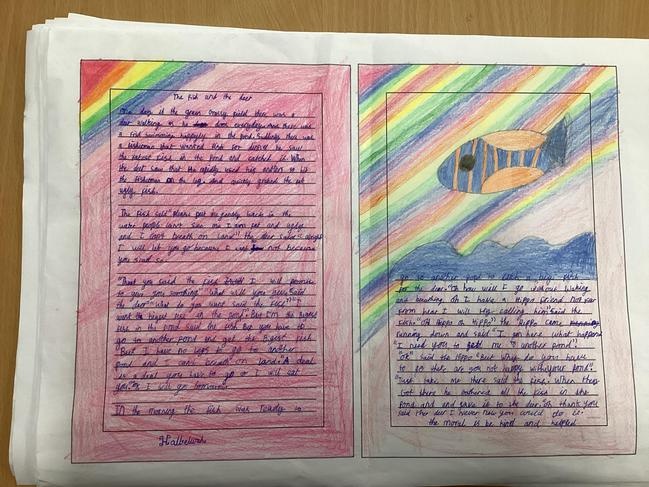 The fish and the deer
One day in the green grassy field there was a
deer walking to he does everyday. And there was
a fish swimming happyly in the pond. Suddenly there was
a fisherman that wanted fish for dinner he saw
the fattest fish in the pond and catched it. When
the deer saw that He rapidly used his antlers to hit
the fisherman on the leg. And quickly grabed the fat
ugly fish.
The fish said "please put me gently back in the
water people can't see me I am fat and ugly
and I can't breath on land." the deer said
I will let you go because I was not because
you said so.
"Thank you said the fish I will promise
to give you something" "What will you give" said
the deer "what do you want said the fish" "I
want the biggest fish in the pond." But I'm the biggest
fish in the pond said the fish But you have to
go to another pond and get the biggest fish
"But I have no legs to go to another
pond and I can't breath on land." "A deal
is a deal you have to go or I will eat
you." "Ok I will go tomorrow"
In the morning the fish was ready to
Halbelwah
go to another pond to catch a big fish
for the deer. "Oh how will I go without walking
and breathing. oh I have a Hippo friend not far
from hear I will try calling him" said the
fish. "Oh Hippo oh Hippo" the Hippo came
running down and said "I am here what happened
"I need you to get me to another pond".
"Ok" said the Hippo "But why do you have
to go there are you not happy with your pond."
"Just take me there said the fish. When they
Got there he gathered all the fish in the
pond and and gave it to the deer. Oh thank you
said ther deer I never new you could do it.
the moral is be kind and helpful